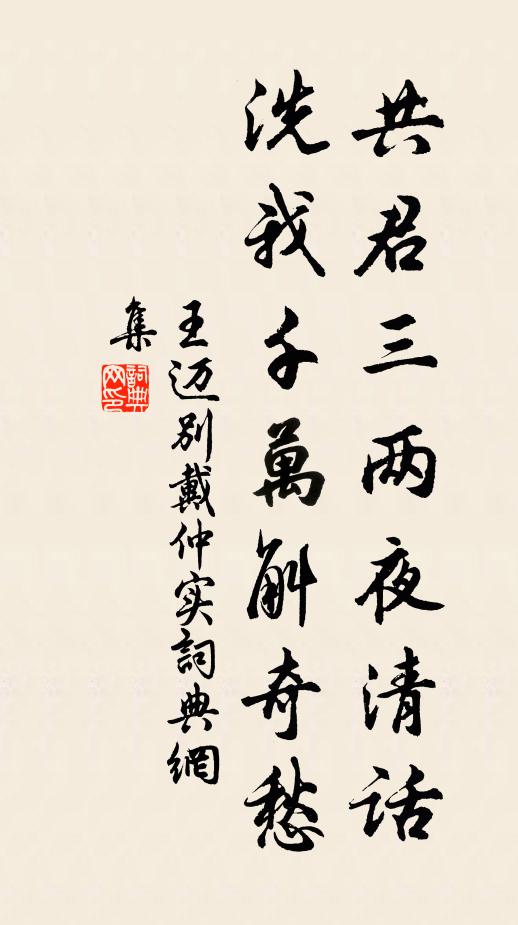 共君三两夜清话
洗我千萬斛奇愁
王迈别戴仲实詞典網
集
詞典网印